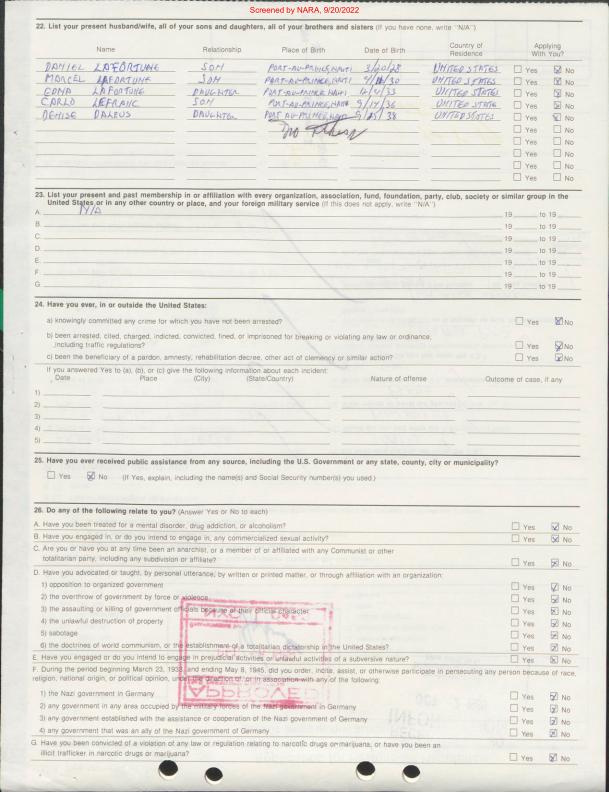 Screened by NARA, 9/20/2022
22. List your present husband/wife, all of your sons and daughters, all of your brothers and sisters (If you have none, write "N/A")
Name Relationship Place of Birth Date of Birth Country of Residence Applying With You?
DANIEL LAFORTUNE SON PORT-AU-PRINCE, HAITI 3/20/28 UNITED STATES Yes No
MARCEL LAFORTUNE SON PORT-AU-PRINCE, HAITI UNITED STATES Yes No
EDNA LAFORTUNE DAUGHTER PORT-AU-PRINCE, HAITI UNITED STATES Yes No
CARLO LEFRANC SON PORT-AU-PRINCE, HAITI 9/14/36 UNITED STATES Yes No
DENISE DALEUS DAUGHTER PORT-AU-PRINCE, HAITI UNITED STATES Yes No
Yes No
Yes No
Yes No
Yes No
Yes No
23. List your present and past membership in or affiliation with every organization, association, fund, foundation, party, club, society or similar group in the
United States or in any other country or place, and your foreign military service (If this does not apply, write "N/A")
A. N/A 19 to 19
B. 19 to 19
C. 19 to 19
D. 19 to 19
E. 19 to 19
F. 19 to 19
G. 19 to 19
24. Have you ever, in or outside the United States:
a) knowingly committed any crime for which you have not been arrested? Yes No
b) been arrested, cited, charged, indicted, convicted, fined, or imprisoned for breaking or violating any law or ordinance,
including traffic regulations? Yes No
c) been the beneficiary of a pardon, amnesty, rehabilitation decree, other act of clemency or similar action? Yes No
If you answered Yes to (a), (b), or (c) give the following information about each incident:
Date Place (City) (State/Country) Nature of offense Outcome of case, if any
1)
2)
3)
4)
5)
25. Have you ever received public assistance from any source, including the U.S. Government or any state, county, city or municipality?
Yes No (If Yes, explain, including the name(s) and Social Security number(s) you used.)
26. Do any of the following relate to you? (Answer Yes or No to each)
A. Have you been treated for a mental disorder, drug addiction, or alcoholism? Yes No
B. Have you engaged in, or do you intend to engage in, any commercialized sexual activity? Yes No
C. Are you or have you at any time been an anarchist, or a member of or affiliated with any Communist or other
totalitarian party, including any subdivision or affiliate? Yes No
D. Have you advocated or taught, by personal utterance, by written or printed matter, or through affiliation with an organization:
1) opposition to organized government Yes No
2) the overthrow of government by force or violence Yes No
3) the assaulting or killing of government officials because of their official character Yes No
4) the unlawful destruction of property Yes No
5) sabotage Yes No
6) the doctrines of world communism, or the establishment of a totalitarian dictatorship in the United States? Yes No
E. Have you engaged or do you intend to engage in prejudicial activities or unlawful activities of a subversive nature? Yes No
F. During the period beginning March 23, 1933, and ending May 8, 1945, did you order, incite, assist, or otherwise participate in persecuting any person because of race,
religion, national origin, or political opinion, under the direction of, or in association with any of the following:
1) the Nazi government in Germany Yes No
2) any government in any area occupied by the military forces of the Nazi government in Germany Yes No
3) any government established with the assistance or cooperation of the Nazi government of Germany Yes No
4) any government that was an ally of the Nazi government of Germany Yes No
APPROVED
G. Have you been convicted of a violation of any law or regulation relating to narcotic drugs or marijuana, or have you been an
illicit trafficker in narcotic drugs or marijuana? Yes No